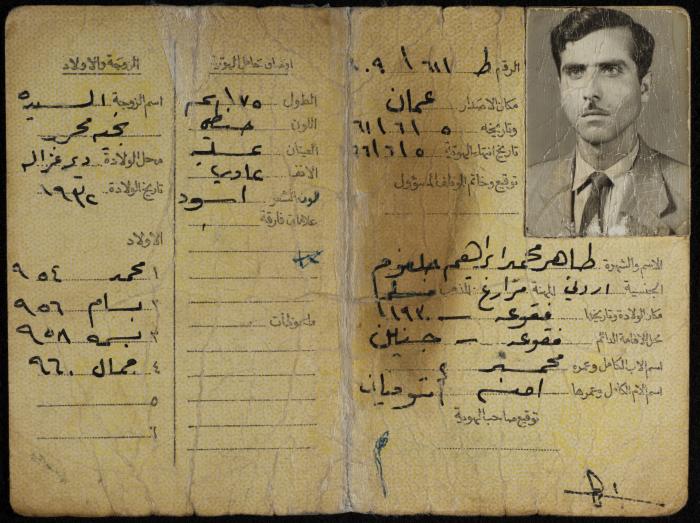 الرقم ط / ٦١١ ٠٩
مكان الاصدار عمان
وتاريخه ٥ / ٦ / ٦١
تاريخ انتهاء الهوية ٥ / ٦ / ٦٦
توقيع وخاتم الموظف المسؤول
الاسم والشهرة طاهر محمد ابراهيم
الجنسية اردني المهنة مزارع المذهب مسلم
مكان الولادة وتاريخها فقوعه - ١٩٣٠
محل الاقامة الدائم فقوعه - جنين
اسم الاب الكامل وعمره محمد
اسم الام الكامل وعمرها امنه
توقيع صاحب الهوية
اوصاف حامل الهوية
الطول ١٧٥ سم
اللون حنطي
العينان عسلي
الانف عادي
لون الشعر اسود
علامات فارقة
ملحوظات
الزوجة والاولاد
اسم الزوجة السيدة
محل الولادة دير غزاله
تاريخ الولادة ١٩٣٢
الاولاد
١ محمد ٩٥٤
٢ بسام ٩٥٦
٣ بسمه ٩٥٨
٤ جمال ٩٦٠
٥
٦